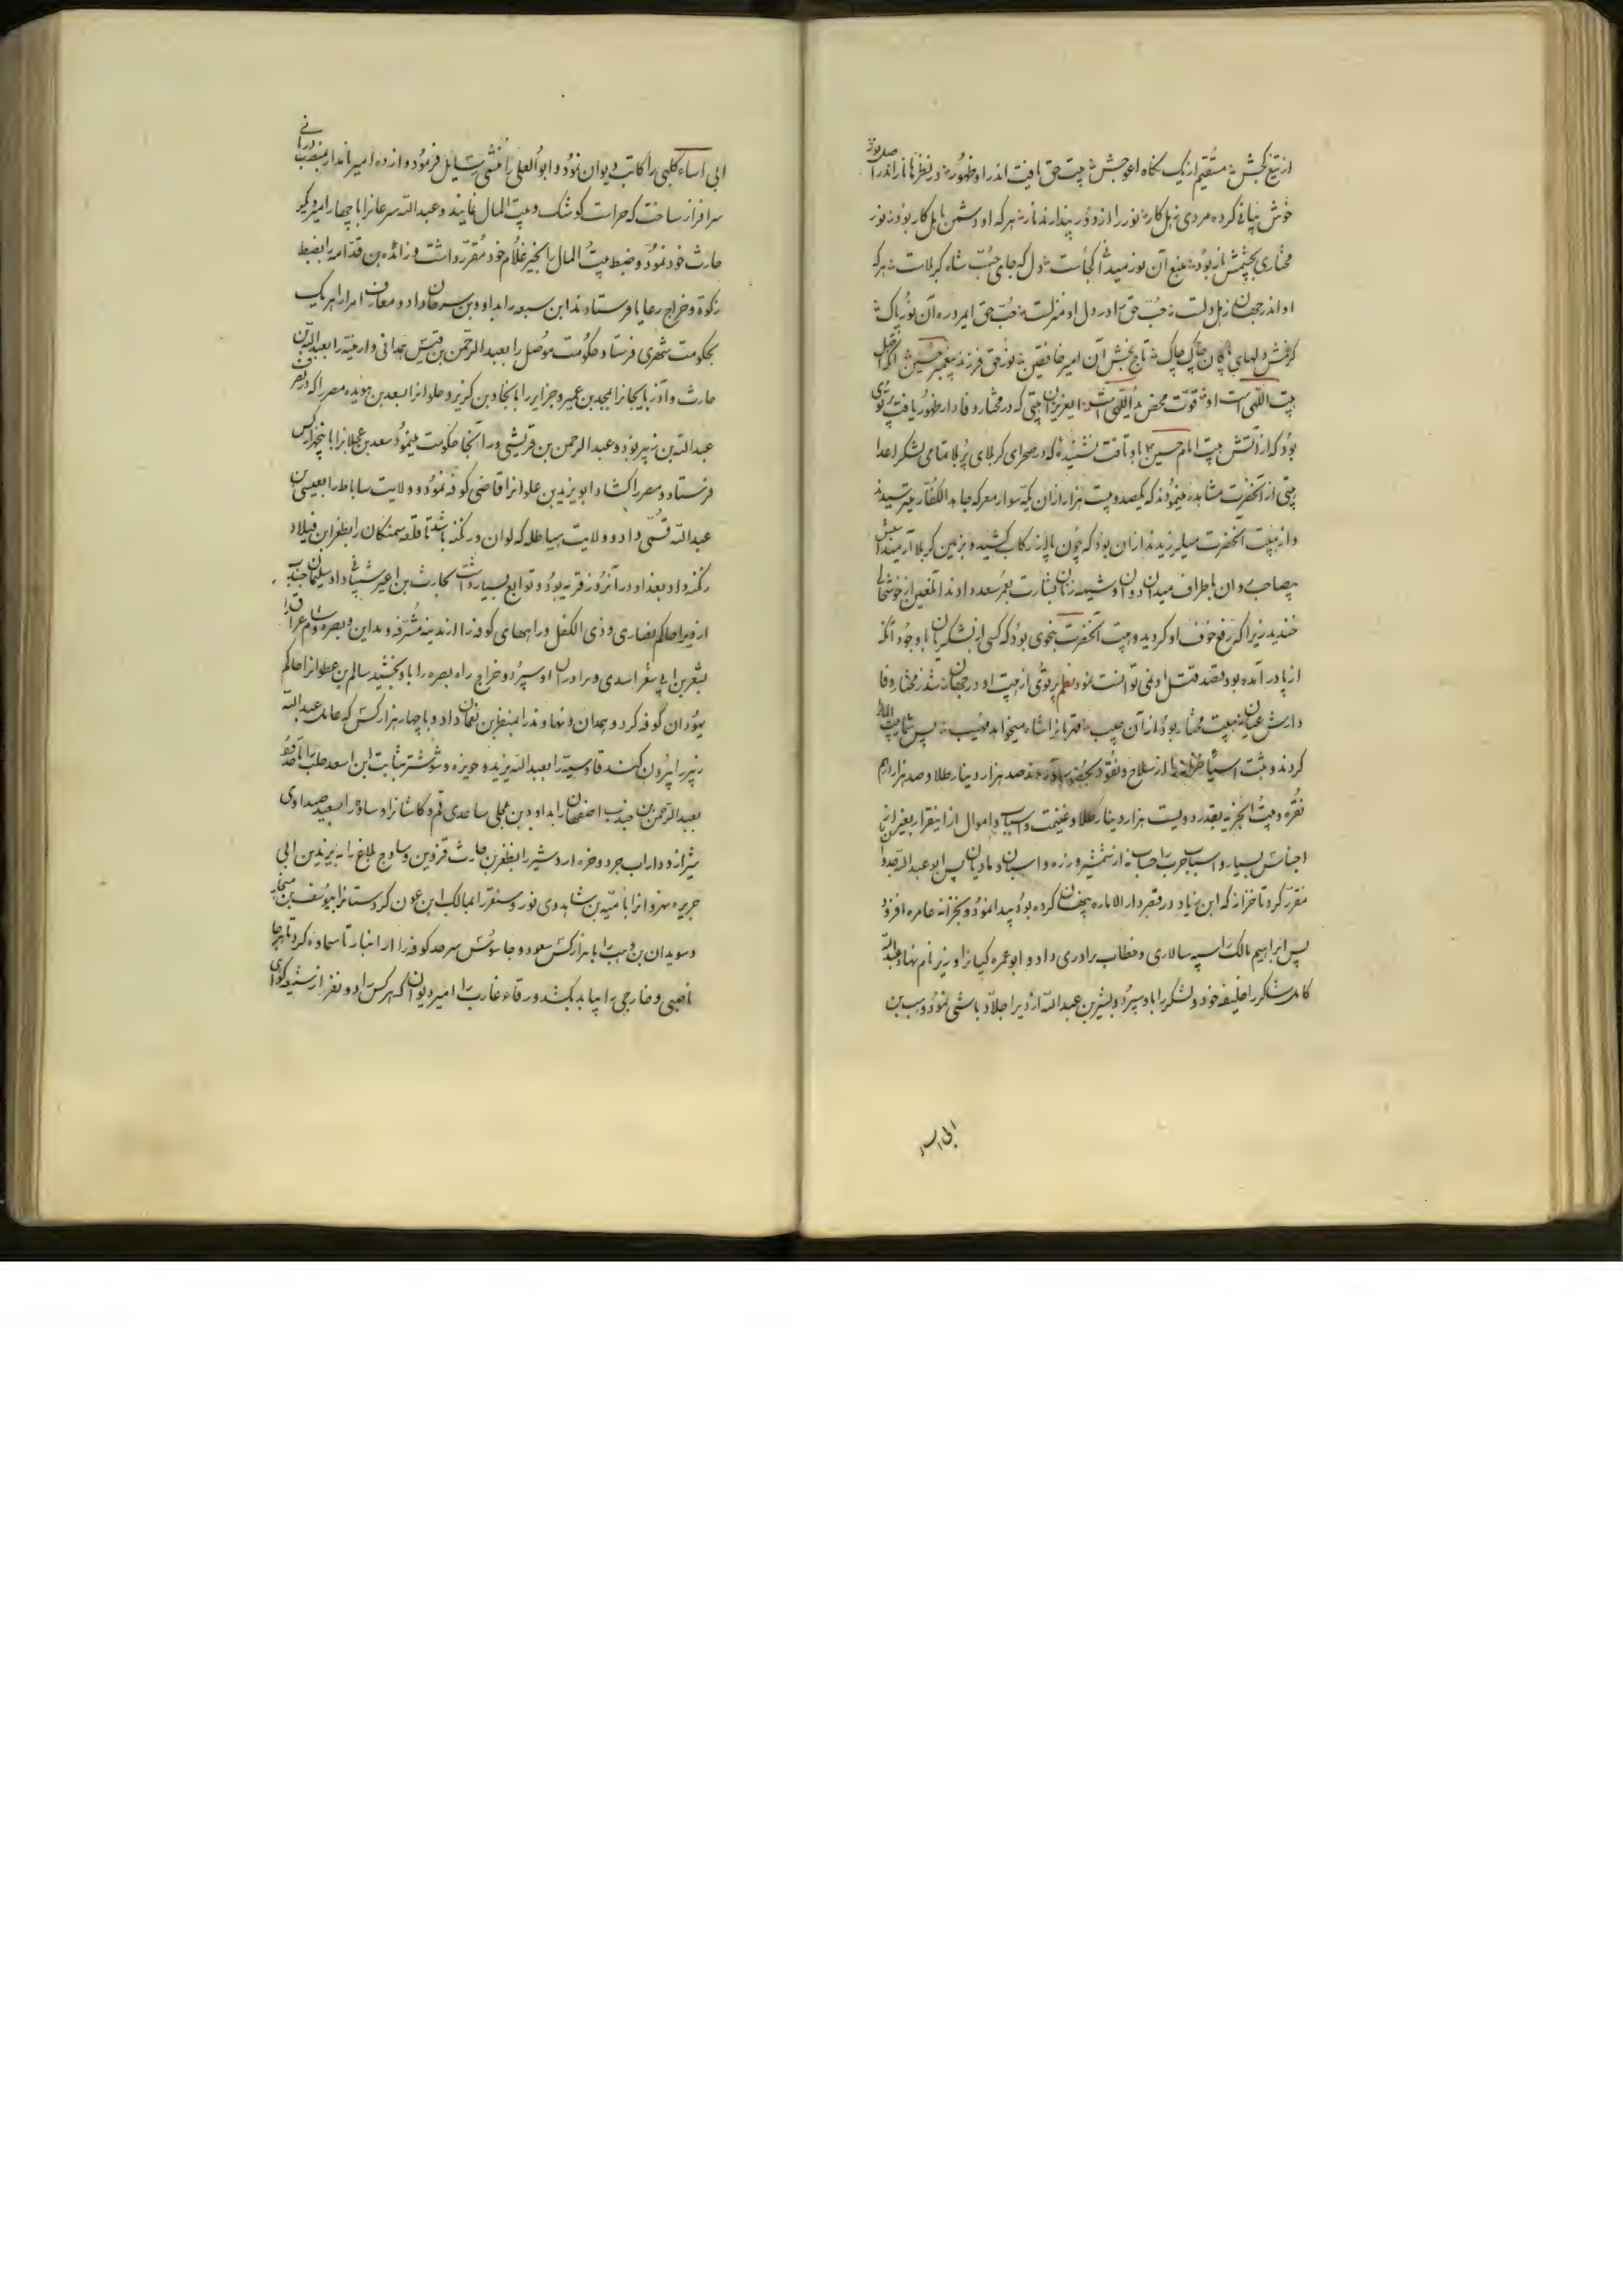 از تیغ کجش مستقیم از یک نگاه اعوجش هیبت حق یافت اندر او ظهور در نظرها نار اندر اصل نور
خوش بیانی کرده مردی اهل کار نور را از دور پندارند نار هر که او دشمن باهل کار بود نور
مختاری بچشمش نار بود منبع آن نور میدانی کجاست دل که جای حب شاه کربلاست هر که
او اندر جهان ز اهل دلست حب حق را در دل او منزلست حب حق امر در ره آن نور پاک
کرفتش دلهای پاکان چاک چاک تاج بخش آن امیر خافقین نور حق فرزند پیغمبر حسین آنکه اصل
هیبت اللهی است او قوت محض ید اللهی است ایعزیزان هیبتی که در مختار وفادار ظهور یافت پرتوی
بود که از آتش هیبت امام حسین ع باو تافت نشنیده که در صحرای کربلای پر بلا تمامی لشکر اعدا
هیبتی از آنحضرت مشاهده مینمودند که یکصد و بیست هزار از آن یکه سوار معرکه جاهد الکفار میترسیدند
و از هیبت آنحضرت میلرزیدند از آن بود که چون پا از رکاب کشید و بزمین کربلا آرمید اسبش
بیصاحب دوان باطراف میدان دوان و شیهه زنان بشارت بعمر سعد دادند آن لعین از خوشحالی
خندید زیرا که رفع خوف او کردید و هیبت آنحضرت بنحوی بود که کسی از لشکریان با وجود آنکه
از پا در آمده بود قصد قتل او نمی توانست نمود نظم پرتوی از هیبت او در جهان شد ز مختار وفا
دارش عیان هیبت مختار بود از آن حبیب قهرمانرا شاه میخواهد مهیب پس بیت المال
کردند و ثبت اسباب خزانه را از سلاح و نقود بحضور آوردند صد هزار دینار طلا و صد هزار درهم
نقره و بیت الجزیه بقدر دویست هزار دینار طلا و غنیمت و اسباب و اموال از اینقرار بغیر از
اجناس بسیار و اسباب حرب را حساب نه از شمشیر و زره و اسبان و مادیان پس ابو عبد الله جدلی را
مقرر کرد تا خزانه که ابن زیاد در قصر دار الاماره پنهان کرده بود پیدا نمود و بخزانه عامره افزود
پس ابراهیم مالک را سپه سالاری و خطاب برادری داد و ابو عمره کیانرا وزیر نام نهاد و عبد الله
کامل شاکر را خلیفه خود و لشکر را باو سپرد و بشیر بن عبد الله از دیر را جلاد باشی نمود و وهب بن
ابی اسماء
ابی اسماء کلبی را کاتب دیوان نمود و ابو العلی را منشی رسایل فرمود و دوازده امیر نامدار بمنصب دربانی
سرافراز ساخت که حراست کوشک و بیت المال نمایند و عبد الله سرعانرا با چهار امیر دیگر
حارث خود نمود و ضبط بیت المال را بخیر غلام خود مقرر داشت و زائده بن قدامه را بضبط
زکوة و خراج رعایا فرستادند ابن سبعه را بداود بن سرحان داد و معارف امرا را هر یک
بحکومت شهری فرستاد حکومت موصل را بعبد الرحمن بن قیس همدانی و ارمنیه را بعبد الله بن
حارث و آذربایجانرا بمجد بن عمیر و جزایر را باسحاق بن کریز و حلوانرا بسعد بن هویده مصر را که در تصرف
عبد الله بن زبیر بود و عبد الرحمن بن قریشی در آنجا حکومت مینمود سعد بن عجلانرا با پنجهزار کس
فرستاد و مصر را کشاد ابو یزید بن علوانرا قاضی کوفه نمود و ولایت ساباط را بعیسی بن
عبد الله قسمی داد و ولایت هیاطله که لوان و رکنه باشد تا قلعه سمنکان را بظفر ابن فیلاد
رکنه داد بغداد در آنروز قریه بود و توابع بسیار داشت بحارث بن اعیر شیبانی داد سلیمان جندب
از دیر را حاکم نصاری و ذی الکفل و راههای کوفه را از مدینه مشرفه و مداین و بصره و شام و عراق را
بشعر بن ابی شعر اسدی و برادران او سپرد و خراج راه بصره را باو بخشید سالم بن علوانرا حاکم
یهودان کوفه کرد و همدان و نهاوند را بمنظر بن نعمان داد و با چهار هزار کس که عامل عبد الله
زبیر را بیرون کند قادسیه را بعبد الله یزید و حویزه و شوشتر بثابت ابن اسعد حلب را تا حد
بعبد الرحمن بن جندب اصفهان را بداود بن عجلی ساعدی قم و کاشانرا و ساوه را بسعید صیداوی
شیراز و داراب جرد و خره اردشیر را بظفر بن حارث قزوین و ساوج بلاغ را به یزید بن ابی
جریره مهروانرا بامیه بن شاهدوی نور و سنقر را بمالک ابن عون کردستانرا بیوسف بن
و سویدان بن وهب را با هزار کس سعود و جاسوس سرحد کوفه را از انبار تا سماوه کرد تا هر جا
ناصبی و خارجی را بیابد بکشد ورقاء غارب را امیر دیوان که هر کس را دو نفر از شیعه کواهی